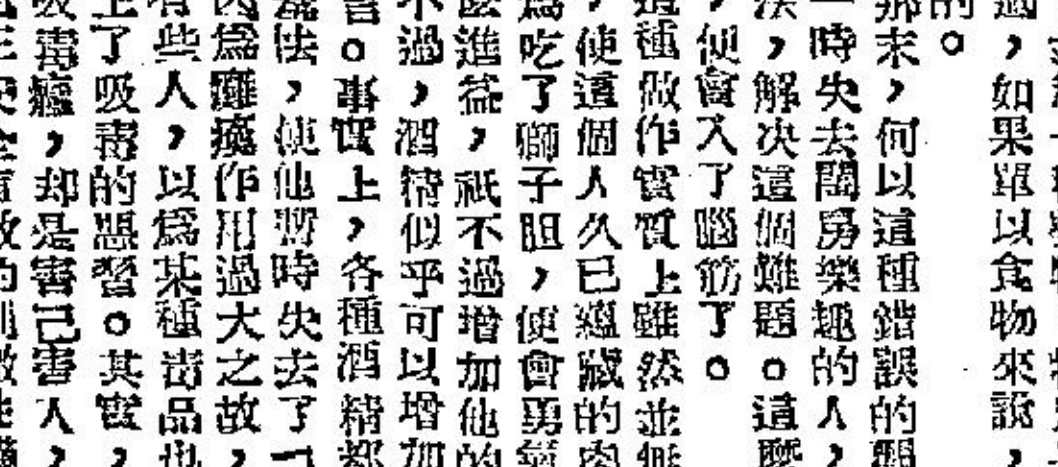 過，如果單以食物來說，
的。
那末，何以這種錯誤的
一時失去閨房樂趣的人，
法，解决這個難題。這麼
，便會入了腦筋了。
這種做作實質上雖然並無
，使這個人久已蘊藏的肉
爲吃了獅子胆，便會勇氣
麼進益，祇不過增加他的
不過，酒精似乎可以增加
害。事實上，各種酒精都
怯，使他暫時失去了一
因爲癱瘓作用過大之故，
有些人，以爲某種毒品也
上了吸毒的惡習。其實，
吸毒癮，却是害己害人，